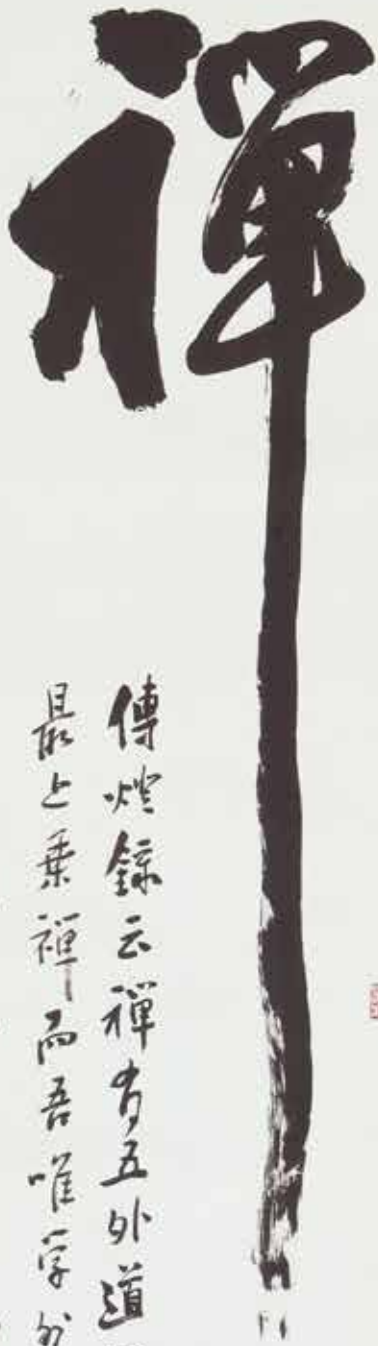 禪
傳燈錄云禪有五外道
最上乗禪而吾唯字外